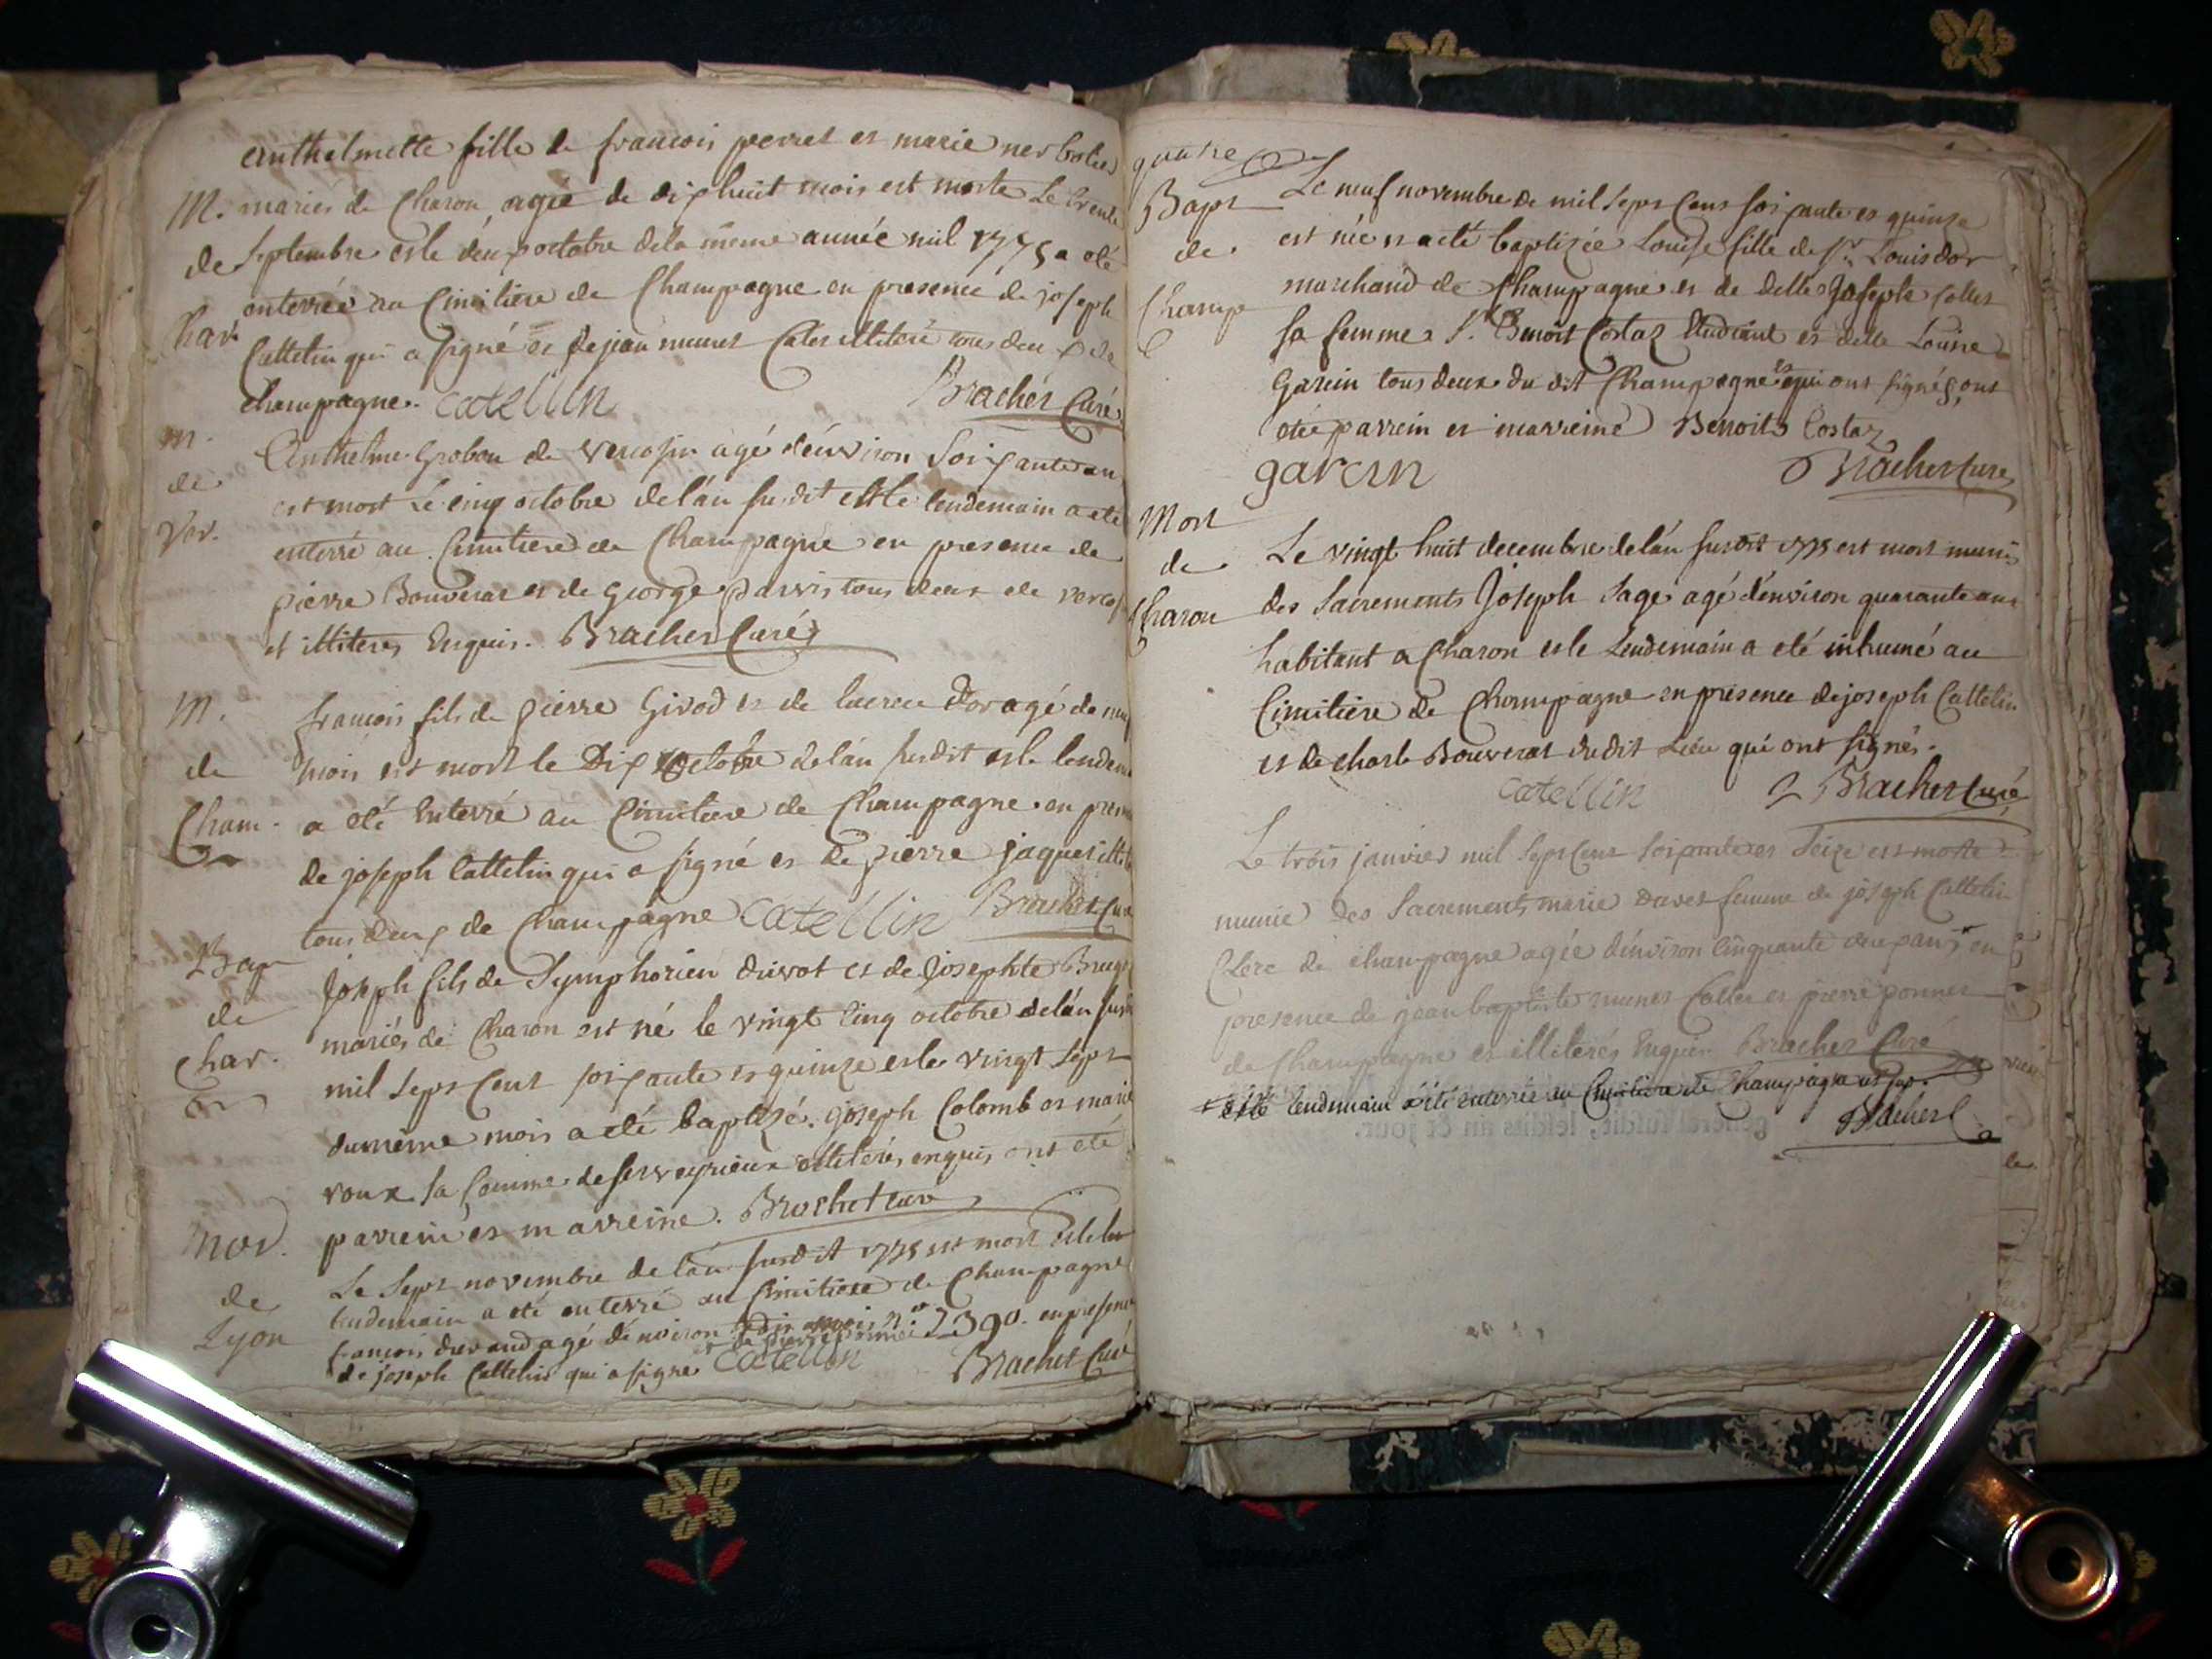 Anthelmette fille de francois perret et marie
M. mariés de Charon agée de dixhuit mois est morte Le trente
de Septembre et le deux octobre de la même année mil 1775 a été
Char. enterrée au Cimitiere de Champagne en presence de joseph
Cattelin qui a signé et de jean munet illiteré tous deux de
champagne. catellin Brachet Curé
m. Anthelme Grobon de Vercosin agé d'environ Soixante an
de est mort Le cinq octobre de l'an susdit et Le lendemain a eté
Ver. enterré au Cimitiere de Champagne en presence de
pierre Bouverat et de George parvis tous deux de
et illiteres Enquis. Brachet Curé
M. francois fils de pierre Givod et de lucrece Dor agé de
de mois est mort le Dix octobre de l'an susdit et le
Cham. a eté Enterré au Cimitiere de Champagne en
de joseph Cattelin qui a signé et de pierre jaquet
tous deux de Champagne catellin Brachet Curé
Bap Joseph fils de Symphorien duivot et de josephte
de mariés de Charon est né le vingt Cinq octobre de l'an
Char. mil Sept Cent soixante et quinze et le vingt Sept
du même mois a eté baptizé. joseph Colomb et marie
roux sa femme de serveyrieux illiterés enquis ont eté
parrein et marreine. Brachet cure
Mor. Le Sept novembre de l'an susdit 1775 est mort et le
de lendemain a eté enterré au Cimitiere de Champagne
Lyon francois durand agé d'environ mois n° 2390. en presence
de joseph Cattelin qui a signé et de pierre ponnet catellin Brachet Curé
quatre
Bapt Le neuf novembre de mil Sept Cens soixante et quinze
de est née et a eté baptizée Louise fille de Sr. Louis dor
Champ marchand de Champagne et de delle josephe
sa femme Sr. Benoit Costaz Etudiant et delle Louise
Garcin tous deux du dit Champagne et qui ont signés ont
eté parrein et marreine Benoit Costaz
garcin Brachet Cure
Mort
de Le vingt huit decembre de l'an susdit 1775 est mort munis
Charon des Sacrements Joseph Sage agé d'environ quarante ans
habitant a Charon et le Lendemain a eté inhumé au
Cimitiere de Champagne en présence de joseph Cattelin
et de charle Bouverat du dit Lieu qui ont signés.
catellin Brachet Curé
Le trois janvier mil Sept Cent soixante et Seize est morte
munie des Sacrements marie davet femme de joseph Cattelin
Clerc de champagne agée d'environ Cinquante deux ans en
presence de jean baptiste munet et pierre ponnet
de Champagne et illiterés Enquis Brachet Curé
et le lendemain a été enterrée au Cimitiere de Champagne
Brachet C.
general susdit, lesdits an & jour.